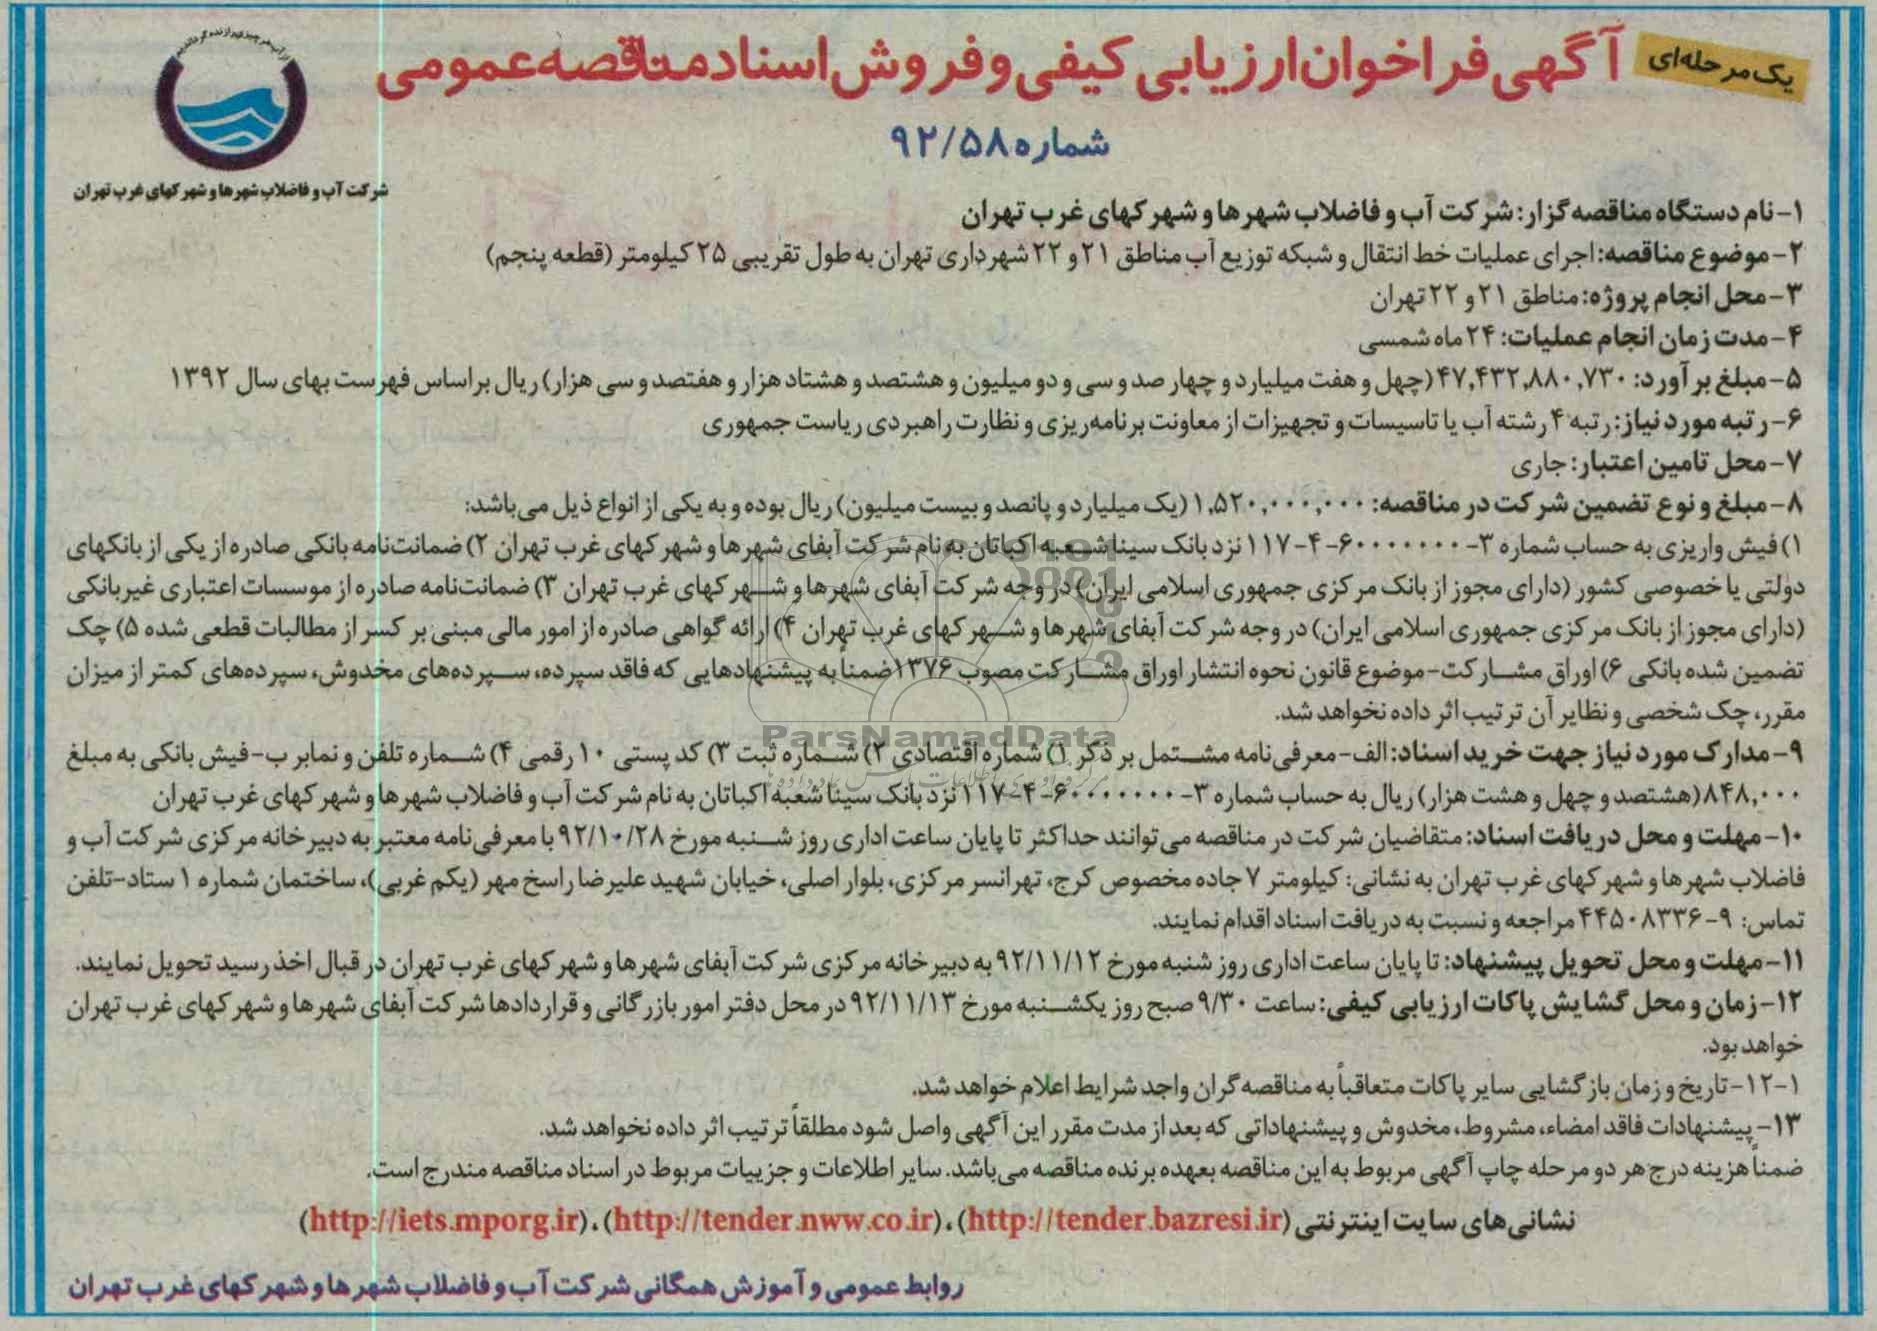 یک مرحله‌ای
آگهی فراخوان ارزیابی کیفی و فروش اسناد مناقصه عمومی
شماره ۹۲/۵۸
شرکت آب و فاضلاب شهرها و شهرکهای غرب تهران
۱- نام دستگاه مناقصه گزار: شرکت آب و فاضلاب شهرها و شهرکهای غرب تهران
۲- موضوع مناقصه: اجرای عملیات خط انتقال و شبکه توزیع آب مناطق ۲۱ و ۲۲ شهرداری تهران به طول تقریبی ۲۵ کیلومتر (قطعه پنجم)
۳- محل انجام پروژه: مناطق ۲۱ و ۲۲ تهران
۴- مدت زمان انجام عملیات: ۲۴ ماه شمسی
۵- مبلغ برآورد: ۴۷,۴۳۲,۸۸۰,۷۳۰ (چهل و هفت میلیارد و چهار صد و سی و دو میلیون و هشتصد و هشتاد هزار و هفتصد و سی هزار) ریال بر اساس فهرست بهای سال ۱۳۹۲
۶- رتبه مورد نیاز: رتبه ۴ رشته آب یا تاسیسات و تجهیزات از معاونت برنامه‌ریزی و نظارت راهبردی ریاست جمهوری
۷- محل تامین اعتبار: جاری
۸- مبلغ و نوع تضمین شرکت در مناقصه: ۱,۵۲۰,۰۰۰,۰۰۰ (یک میلیارد و پانصد و بیست میلیون) ریال بوده و به یکی از انواع ذیل می‌باشد:
۱) فیش واریزی به حساب شماره ۳-۶۰۰۰۰۰۰۰-۴-۱۱۷ نزد بانک سینا شعبه اکباتان به نام شرکت آبفای شهرها و شهرکهای غرب تهران ۲) ضمانت‌نامه بانکی صادره از یکی از بانکهای
دولتی یا خصوصی کشور (دارای مجوز از بانک مرکزی جمهوری اسلامی ایران) در وجه شرکت آبفای شهرها و شهرکهای غرب تهران ۳) ضمانت‌نامه صادره از موسسات اعتباری غیربانکی
(دارای مجوز از بانک مرکزی جمهوری اسلامی ایران) در وجه شرکت آبفای شهرها و شهرکهای غرب تهران ۴) ارائه گواهی صادره از امور مالی مبنی بر کسر از مطالبات قطعی شده ۵) چک
تضمین شده بانکی ۶) اوراق مشارکت- موضوع قانون نحوه انتشار اوراق مشارکت مصوب ۱۳۷۶ ضمنا به پیشنهادهایی که فاقد سپرده، سپرده‌های مخدوش، سپرده‌های کمتر از میزان
مقرر، چک شخصی و نظایر آن ترتیب اثر داده نخواهد شد.
ParsNamadData
۹- مدارک مورد نیاز جهت خرید اسناد: الف- معرفی‌نامه مشتمل بر ذکر ۱) شماره اقتصادی ۲) شماره ثبت ۳) کد پستی ۱۰ رقمی ۴) شماره تلفن و نمابر ب- فیش بانکی به مبلغ
۸۴۸,۰۰۰ (هشتصد و چهل و هشت هزار) ریال به حساب شماره ۳-۶۰۰۰۰۰۰۰-۴-۱۱۷ نزد بانک سینا شعبه اکباتان به نام شرکت آب و فاضلاب شهرها و شهرکهای غرب تهران
۱۰- مهلت و محل دریافت اسناد: متقاضیان شرکت در مناقصه می‌توانند حداکثر تا پایان ساعت اداری روز شنبه مورخ ۹۲/۱۰/۲۸ با معرفی‌نامه معتبر به دبیرخانه مرکزی شرکت آب و
فاضلاب شهرها و شهرکهای غرب تهران به نشانی: کیلومتر ۷ جاده مخصوص کرج، تهرانسر مرکزی، بلوار اصلی، خیابان شهید علیرضا راسخ مهر (یکم غربی)، ساختمان شماره ۱ ستاد- تلفن
تماس: ۹-۴۴۵۰۸۳۳۶ مراجعه و نسبت به دریافت اسناد اقدام نمایند.
۱۱- مهلت و محل تحویل پیشنهاد: تا پایان ساعت اداری روز شنبه مورخ ۹۲/۱۱/۱۲ به دبیرخانه مرکزی شرکت آبفای شهرها و شهرکهای غرب تهران در قبال اخذ رسید تحویل نمایند.
۱۲- زمان و محل گشایش پاکات ارزیابی کیفی: ساعت ۹/۳۰ صبح روز یکشنبه مورخ ۹۲/۱۱/۱۳ در محل دفتر امور بازرگانی و قراردادها شرکت آبفای شهرها و شهرکهای غرب تهران
خواهد بود.
۱۲-۱- تاریخ و زمان بازگشایی سایر پاکات متعاقباً به مناقصه گران واجد شرایط اعلام خواهد شد.
۱۳- پیشنهادات فاقد امضاء، مشروط، مخدوش و پیشنهاداتی که بعد از مدت مقرر این آگهی واصل شود مطلقاً ترتیب اثر داده نخواهد شد.
ضمناً هزینه درج هر دو مرحله چاپ آگهی مربوط به این مناقصه بعهده برنده مناقصه می‌باشد. سایر اطلاعات و جزییات مربوط در اسناد مناقصه مندرج است.
نشانی‌های سایت اینترنتی (http://tender.bazresi.ir)، (http://tender.nww.co.ir)، (http://iets.mporg.ir)
روابط عمومی و آموزش همگانی شرکت آب و فاضلاب شهرها و شهرکهای غرب تهران